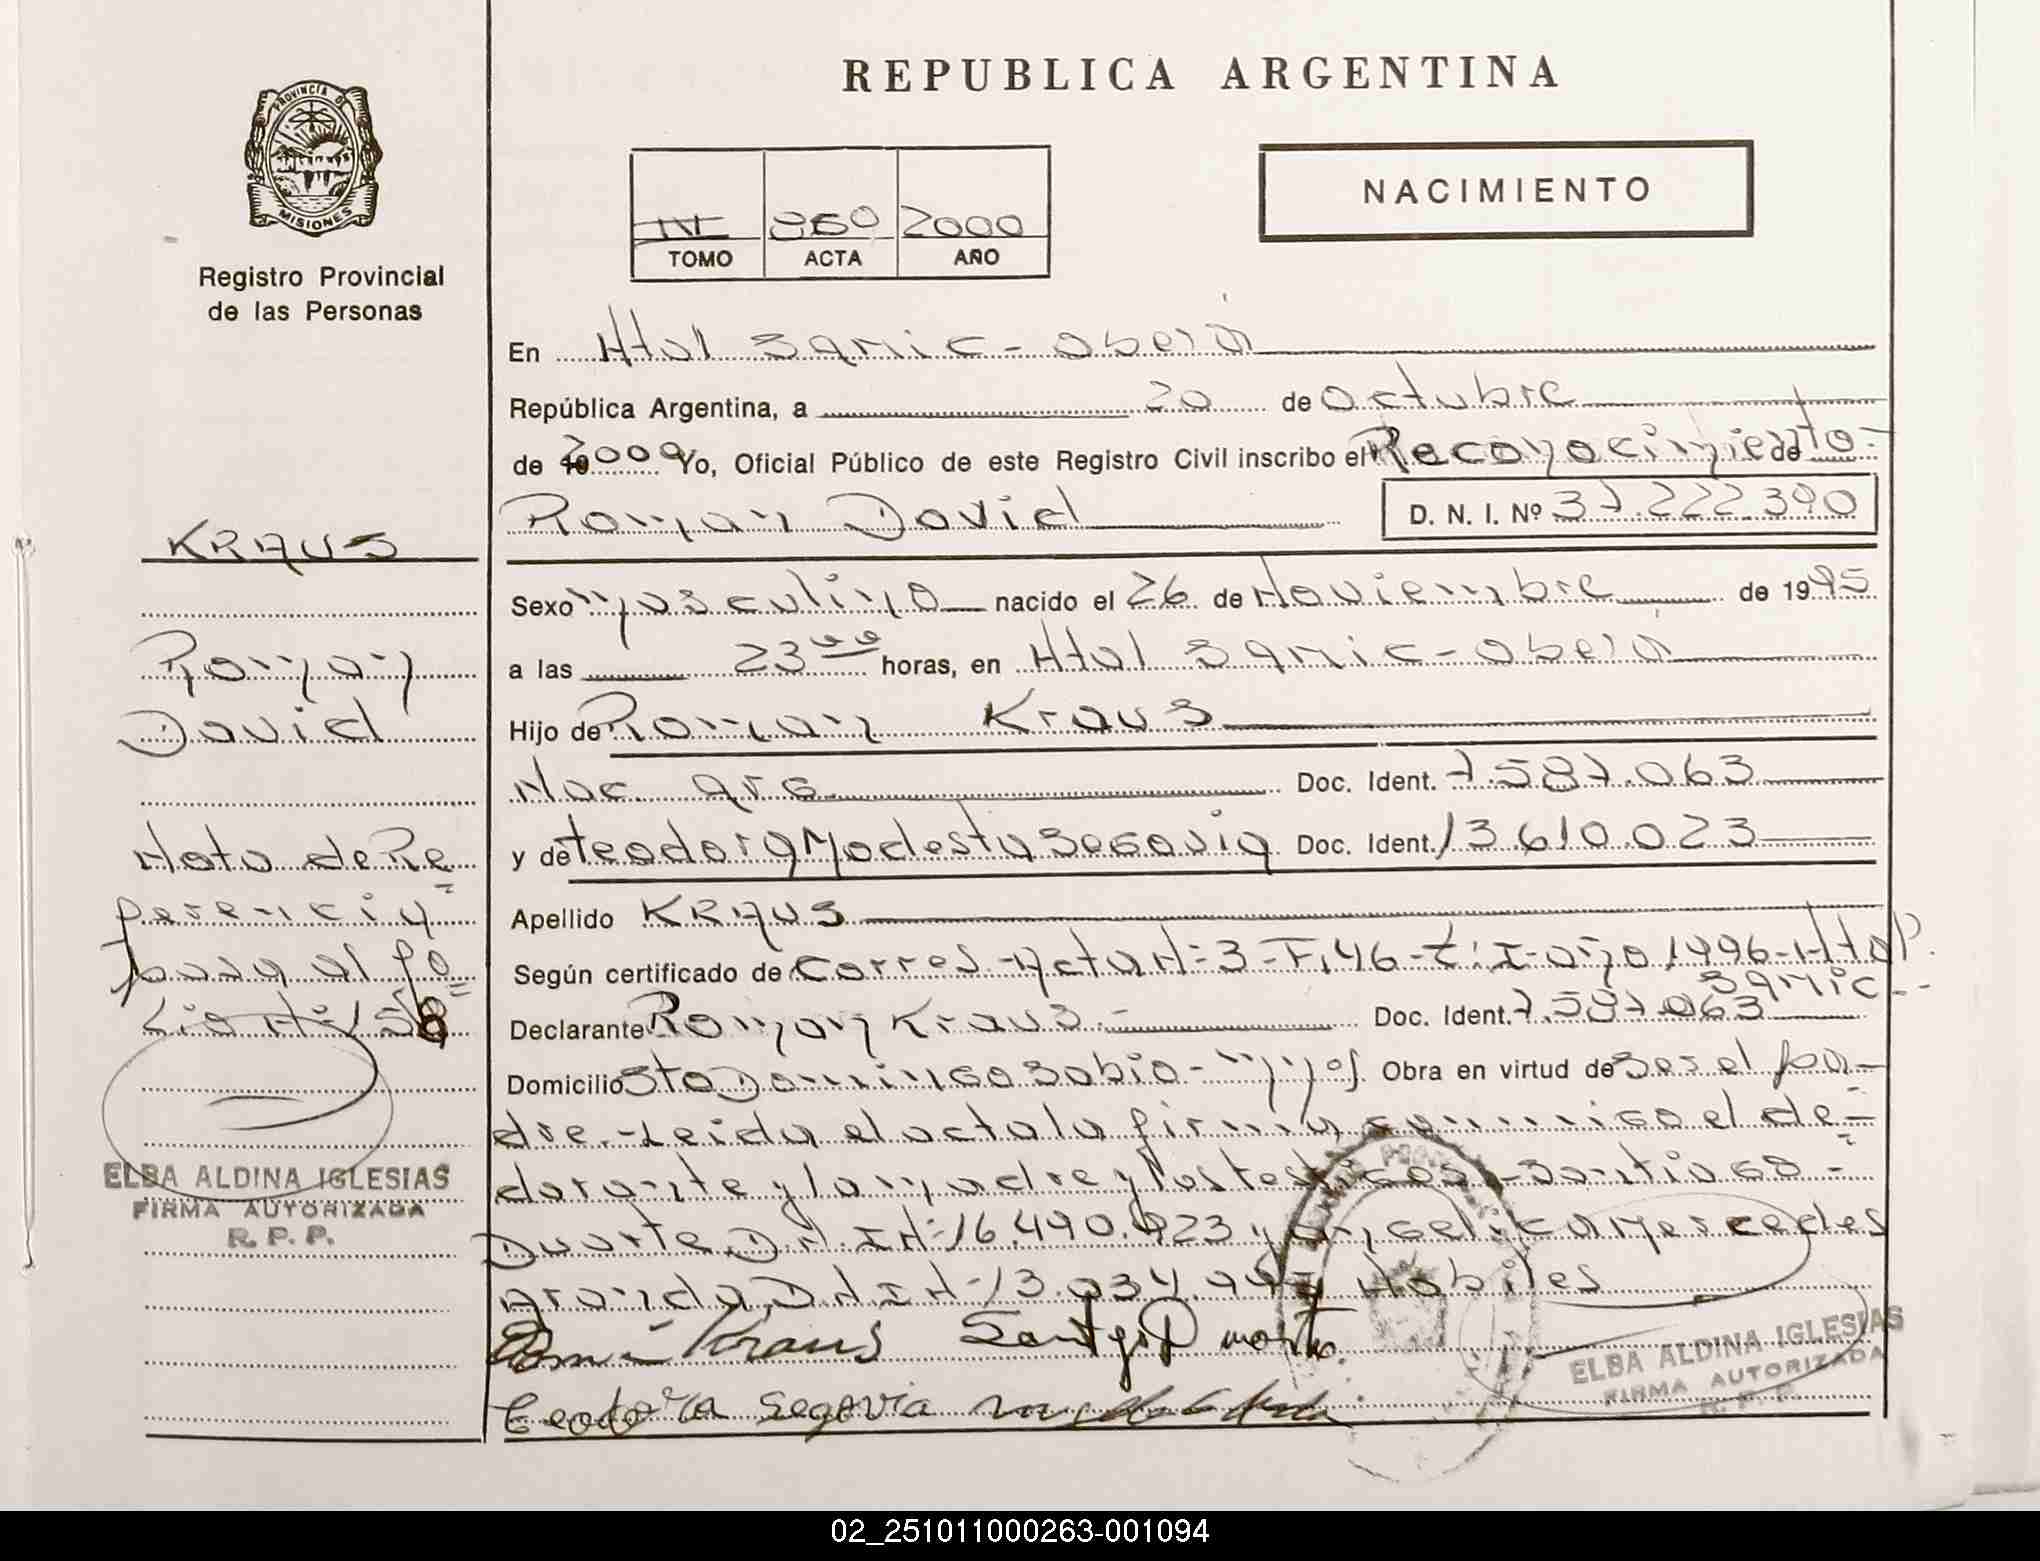 REPUBLICA ARGENTINA
PROVINCIA DE
MISIONES
Registro Provincial
de las Personas
860 2000
TOMO ACTA AÑO
NACIMIENTO
En Htal SAMIC - Oberá
República Argentina, a 20 de Octubre
de 2000 Yo, Oficial Público de este Registro Civil inscribo el Reconocimiento de
Roman David D. N. I. Nº 37.222.390
KRAUS
Roman
David
Nota de Re
ferencia
pasa al fo
lio Nº 158
ELBA ALDINA IGLESIAS
FIRMA AUTORIZADA
R. P. P.
Sexo masculino nacido el 26 de Noviembre de 1995
a las 23 00 horas, en Htal SAMIC - Oberá
Hijo de Roman Kraus
Nac. Arg. Doc. Ident. 7.587.063
y de Teodora Modesta Segovia Doc. Ident. 13.610.023
Apellido KRAUS
Según certificado de Corres. - Acta Nº 3 - F. 46 - T: I - año 1996 - Htal.
SAMIC. -
Declarante Roman Kraus. - Doc. Ident. 7.587.063
Domicilio Sto Domingo Sabio - Mnes. Obra en virtud de ser el pa-
dre. - Leida el acta la firma conmigo el de-
clarante y la madre y los testigos - Santiago -
Duarte D.N.I Nº 16.490.923 y Angelica Mercedes
D.N.I Nº 13.034. Habiles
Kraus
Teodora Segovia
ELBA ALDINA IGLESIAS
FIRMA AUTORIZADA
02_251011000263-001094